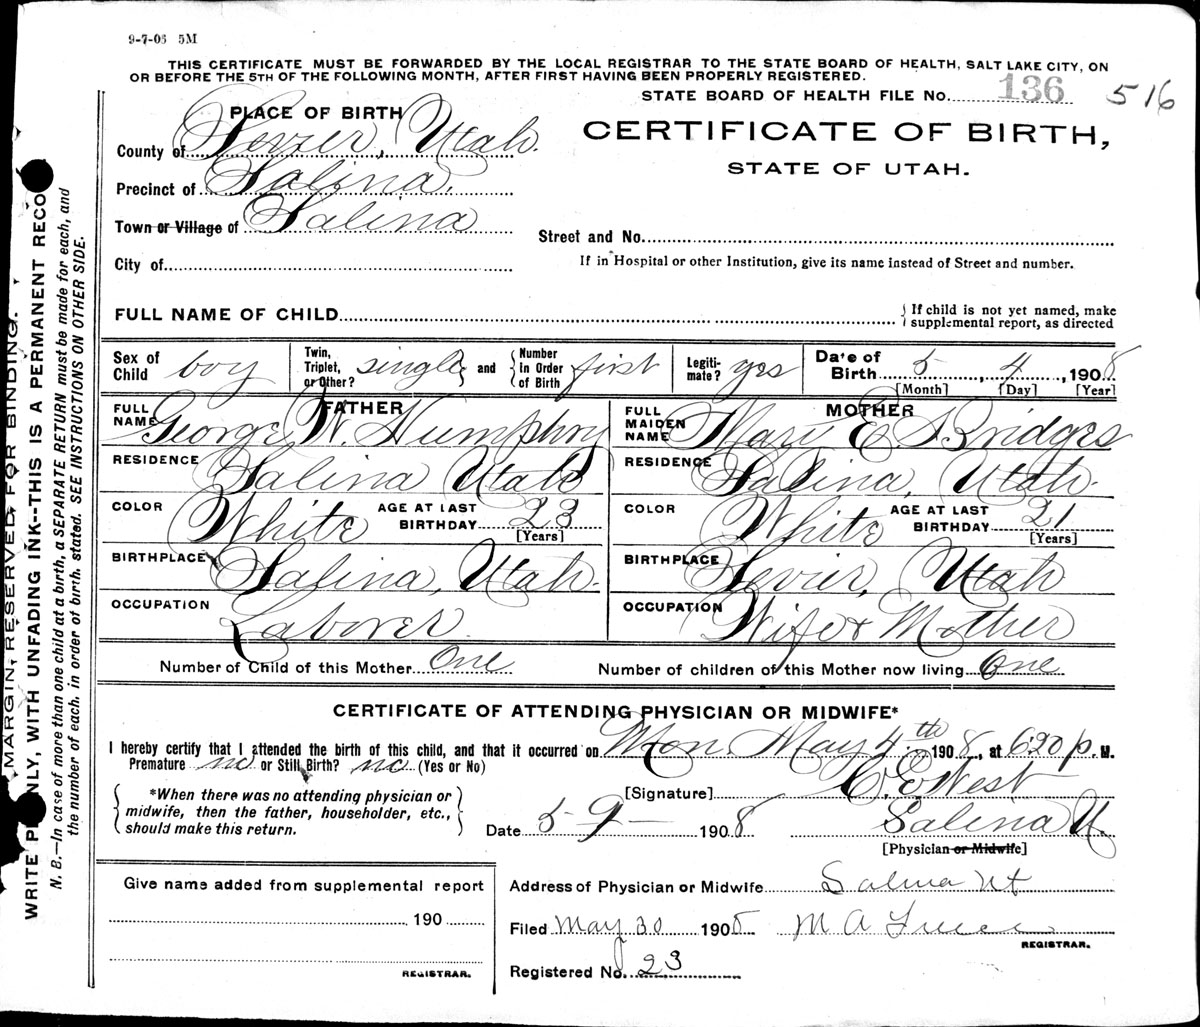 9-7-06 5M
THIS CERTIFICATE MUST BE FORWARDED BY THE LOCAL REGISTRAR TO THE STATE BOARD OF HEALTH, SALT LAKE CITY, ON
OR BEFORE THE 5TH OF THE FOLLOWING MONTH, AFTER FIRST HAVING BEEN PROPERLY REGISTERED.
STATE BOARD OF HEALTH FILE No. 136 516
PLACE OF BIRTH
County of Sevier, Utah.
Precinct of Salina.
Town or Village of Salina
City of
CERTIFICATE OF BIRTH,
STATE OF UTAH.
Street and No.
If in Hospital or other Institution, give its name instead of Street and number.
FULL NAME OF CHILD
{ If child is not yet named, make
supplemental report, as directed
Sex of Child boy
Twin, Triplet, or Other? single } and { Number In Order of Birth first
Legitimate? yes
Date of Birth 5, 4, 1908
[Month] [Day] [Year]
FATHER
FULL NAME George W. Humphry
RESIDENCE Salina Utah
COLOR White AGE AT LAST BIRTHDAY 23
[Years]
BIRTHPLACE Salina, Utah.
OCCUPATION Laborer
MOTHER
FULL MAIDEN NAME Mary E Bridges
RESIDENCE Salina, Utah.
COLOR White AGE AT LAST BIRTHDAY 21
[Years]
BIRTHPLACE Sevier, Utah
OCCUPATION Wife & Mother
Number of Child of this Mother One
Number of children of this Mother now living One
CERTIFICATE OF ATTENDING PHYSICIAN OR MIDWIFE*
I hereby certify that I attended the birth of this child, and that it occurred on Mon. May 4th 1908, at 6:20 p. M.
Premature no or Still Birth? no (Yes or No)
*When there was no attending physician or
midwife, then the father, householder, etc.,
should make this return.
[Signature] C. E. West
Date 5-9- 1908 Salina U.
[Physician or Midwife]
Give name added from supplemental report
190
REGISTRAR.
Address of Physician or Midwife Salina Ut
Filed May 30 1908 M A
REGISTRAR.
Registered No. 23
MARGIN RESERVED FOR BINDING.
WRITE PLAINLY, WITH UNFADING INK--THIS IS A PERMANENT RECO
N. B.—In case of more than one child at a birth, a SEPARATE RETURN must be made for each, and
the number of each, in order of birth, stated. SEE INSTRUCTIONS ON OTHER SIDE.